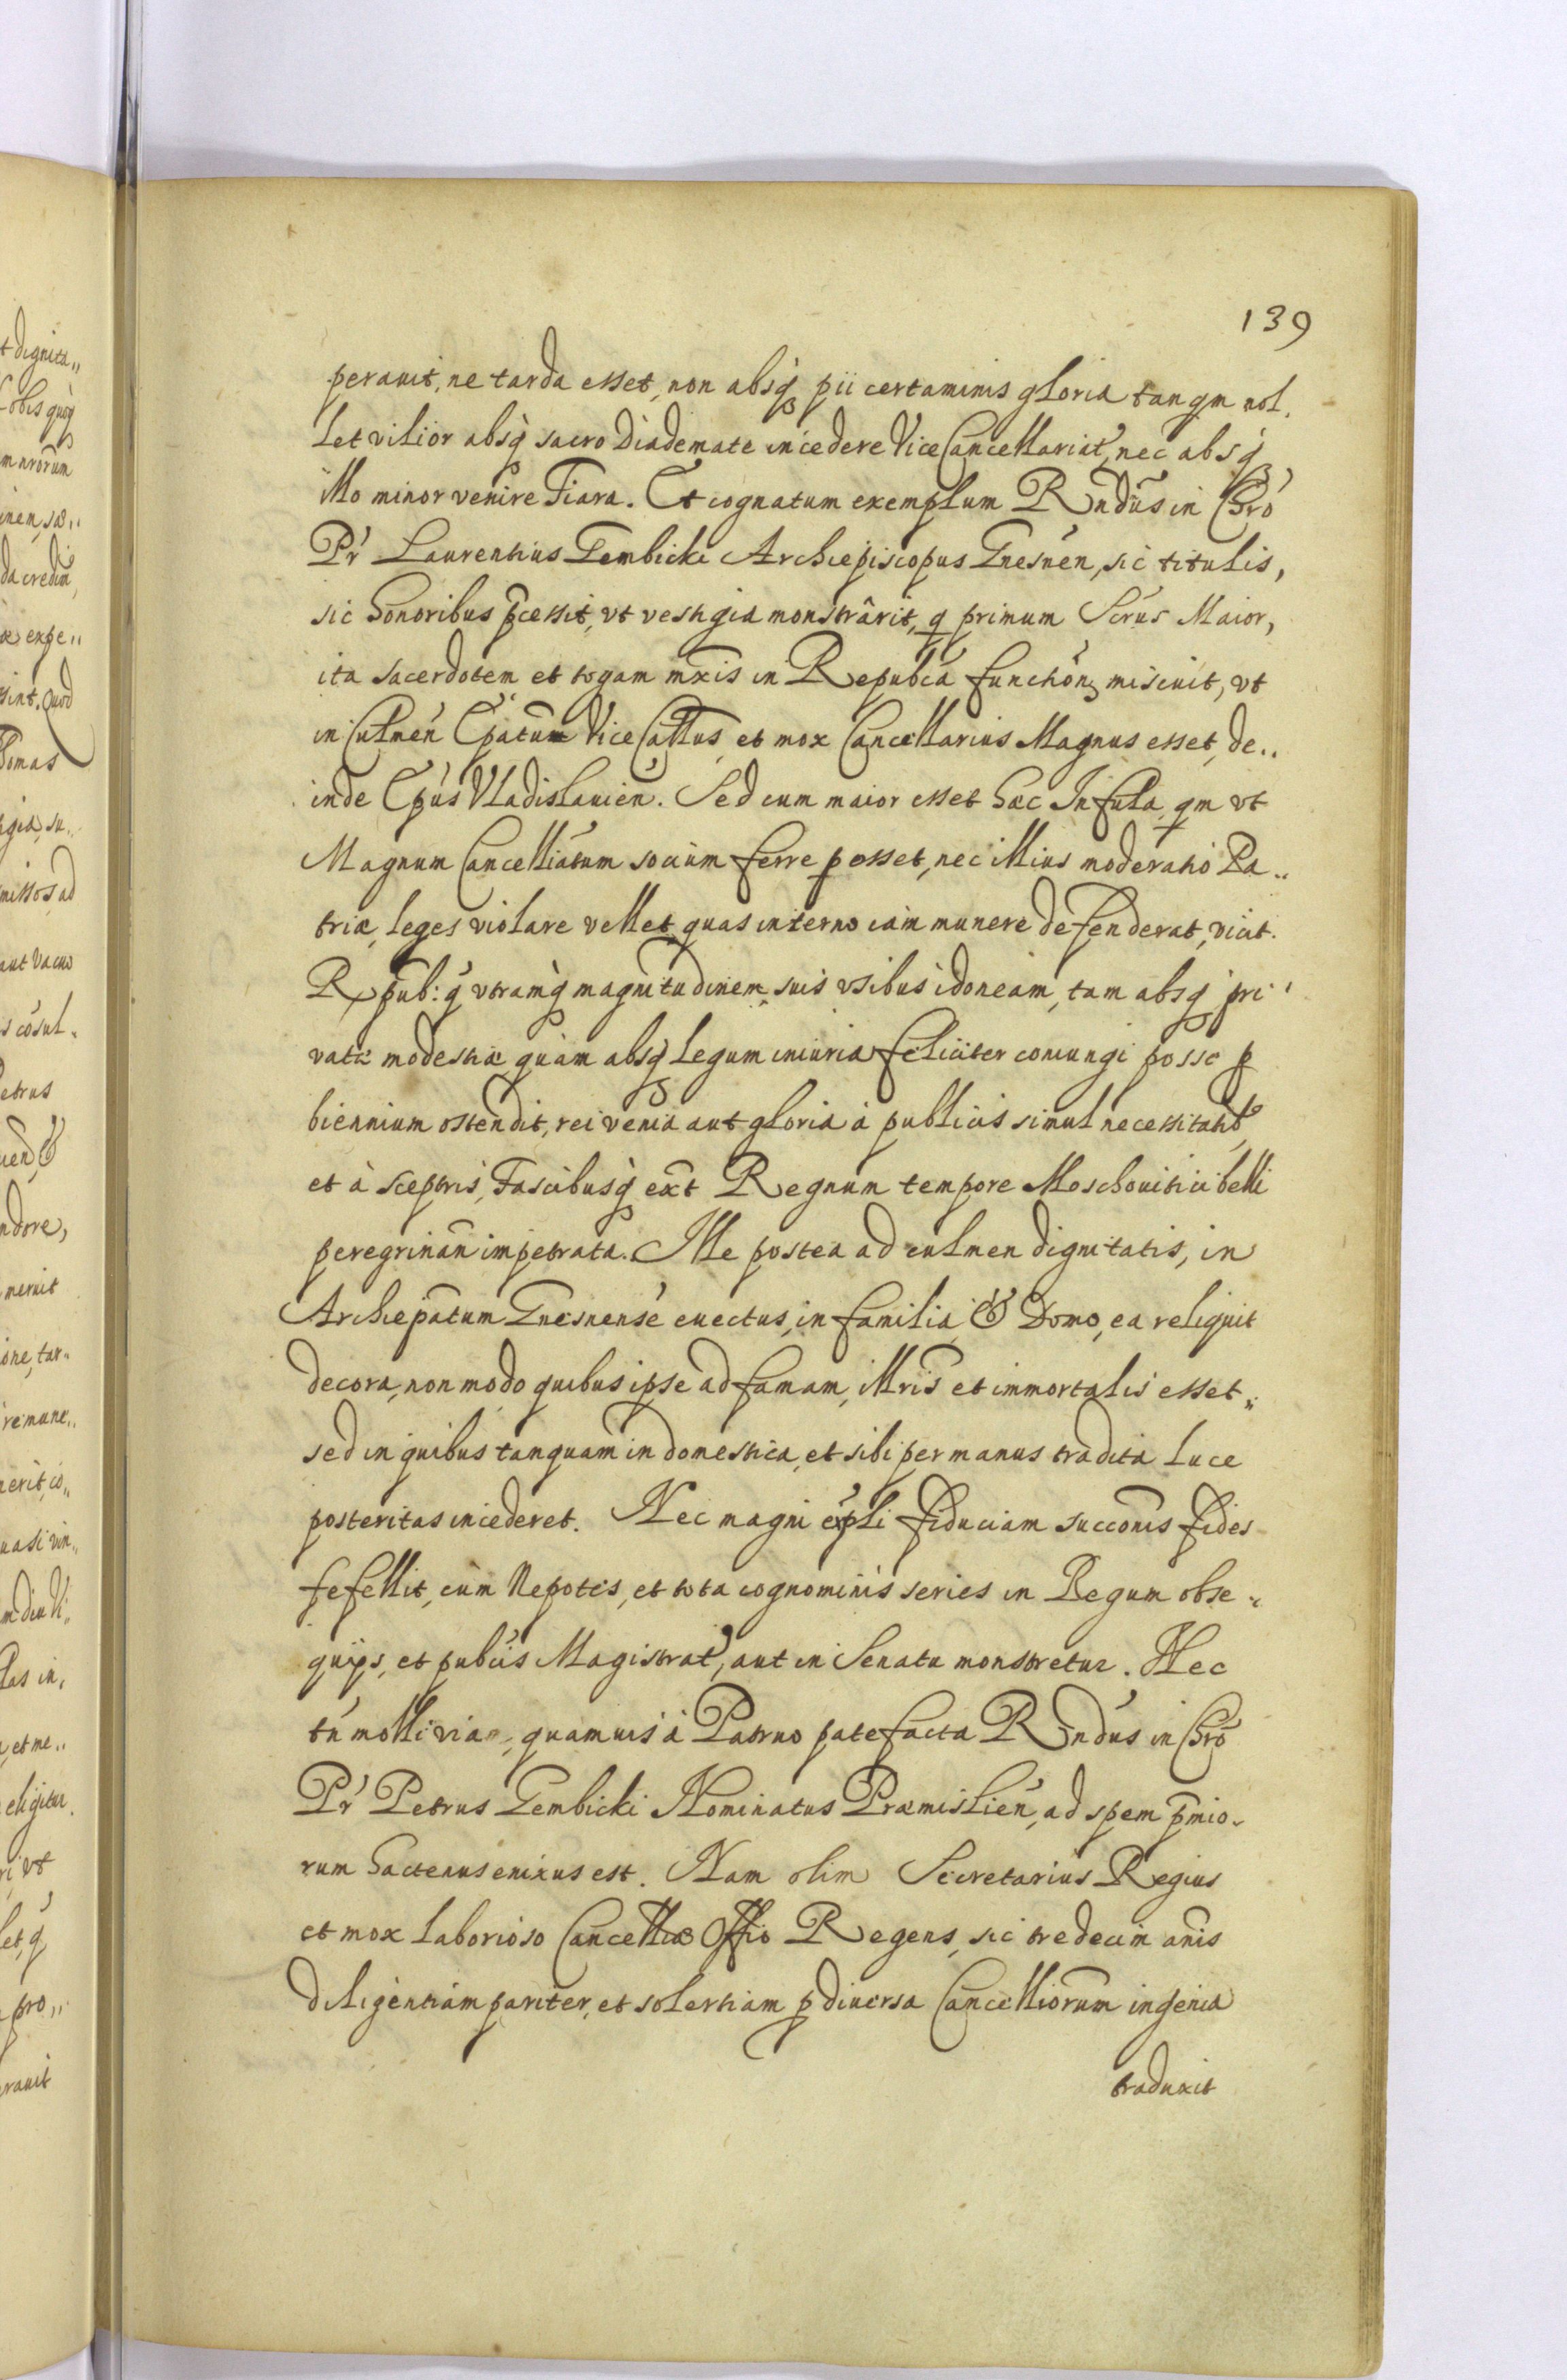 139
perauit, ne tarda esset, non absq3 pii certaminis gloria tanqm nol,
let vilior absq sacro Diademate incedere ViceCancellariat9, nec absq
illo minor venire Tiara. Et cognatum exemplum Rndus in Chro
Pr Laurentius Gembicki Archiepiscopus Gnesnen, sic titulis,
sic honoribus pcessit, vt vestigia monstrârit, q primum Scrus Maior,
ita sacerdotem et togam mxis in Republca functionz miscuit, vt
in Culmen Epatum ViceCallus, et mox Cancellarius Magnus esset, de..
inde Epus Vladislauien. Sed cum maior esset hæc Infula, qm vt
Magnum Cancelliatum socium ferre posset, nec illius moderatio Pa..
triæ leges violare vellet, quas interno iam munere defenderat, vicit
Rpub: q vtramq magnitudinem, suis vsibus idoneam, tam absq pri
vatæ modestiæ quàm absq legum iniuria feliciter coniungi posse p
biennium ostendit, rei venia aut gloria à publicis simul necessitatib9,
et à sceptris, Fascibusq ext Regnum tempore Moschouitici belli
peregrinan impetrata. Ille postea ad culmen dignitatis, in
Archiepatum Gnesnense euectus, in familia & Domo, ea reliquit
decora, non modo quibus ipse ad famam, Illris et immortalis esset,,
sed in quibus tanquam in domestica, et sibi per manus tradita luce
posteritas incederet. Nec magni expli fiduciam succonis fides
fefellit, cùm Nepotes, et tota cognominis series in Regum obse,,
quijs, et pubcis Magistrat9, aut in Senatu monstretur. Nec
tn molli via, quamuis à Patruo patefacta Rndus in Chro
Pr Petrus Gembicki Nominatus Præmislien, ad spem pmio,
rum hactenus enixus est. Nam olim Secretarius Regius
et mox laborioso Cancelliæ Offio Regens, sic tredecim anis
diligentiam pariter, et solertiam p diuersa Cancelliorum ingenia
traduxit